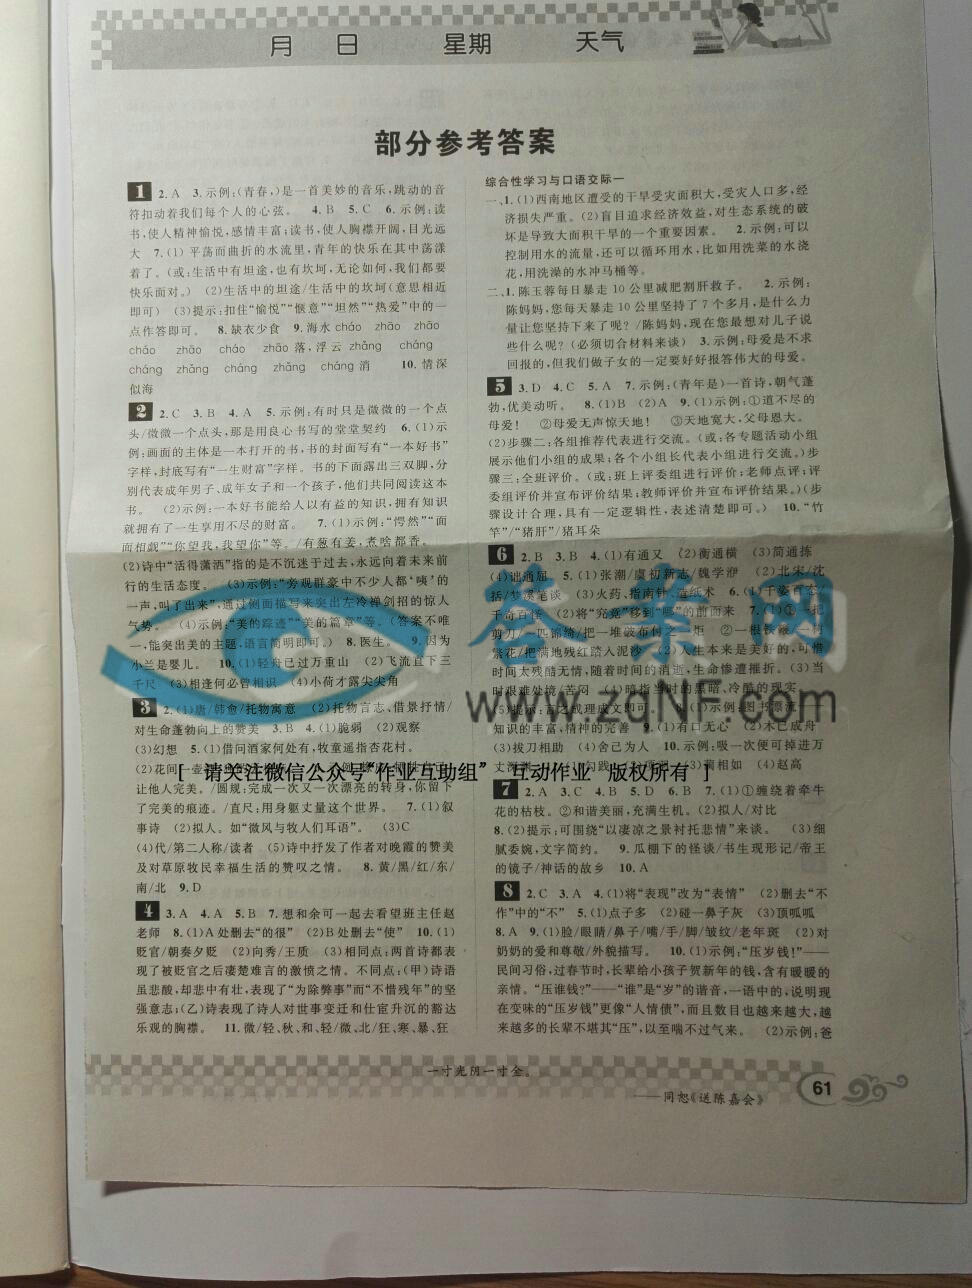 月 日 星期 天气
部分参考答案
1 2.A 3.示例:(青春,)是一首美妙的音乐,跳动的音
符扣动着我们每个人的心弦。 4.B 5.C 6.示例:读
书,使人精神愉悦,感情丰富;读书,使人胸襟开阔,目光远
大 7.(1)平荡而曲折的水流里,青年的快乐在其中荡漾
着了。(或:生活中有坦途,也有坎坷,无论如何,我们都要
快乐面对。) (2)生活中的坦途/生活中的坎坷(意思相近
即可) (3)提示:扣住“愉悦”“惬意”“坦然”“热爱”中的一
点作答即可。 8.缺衣少食 9.海水cháo zhāo zhāo
cháo zhāo cháo zhāo 落,浮云 zhǎng cháng
cháng zhǎng cháng zhǎng cháng 消 10.情深
似海
2 2.C 3.B 4.A 5.示例:有时只是微微的一个点
头/微微一个点头,那是用良心书写的堂堂契约 6.(1)示
例:画面的主体是一本打开的书,书的封面写有“一本好书”
字样,封底写有“一生财富”字样。书的下面露出三双脚,分
别代表成年男子、成年女子和一个孩子,他们共同阅读这本
书。 (2)示例:一本好书能给人以有益的知识,拥有知识
就拥有了一生享用不尽的财富。 7.(1)示例:“愕然”“面
面相觑”“你望我,我望你”等。/有葱有姜,煮啥都香。
(2)诗中“活得潇洒”指的是不沉迷于过去,永远向着未来前
行的生活态度。 (3)示例:“旁观群豪中不少人都‘咦’的
一声,叫了出来”,通过侧面描写来突出左冷禅剑招的惊人
气势。 (4)示例:“美的踪迹”“美的篇章”等。(答案不唯
一,能突出美的主题,语言简明即可。) 8.医生。 9.因为
小兰是婴儿。 10.(1)轻舟已过万重山 (2)飞流直下三
千尺 (3)相逢何必曾相识 (4)小荷才露尖尖角
3 2.(1)唐/韩愈/托物寓意 (2)托物言志、借景抒情/
对生命蓬勃向上的赞美 3.(1)脆弱 (2)观察
(3)幻想 5.(1)借问酒家何处有,牧童遥指杏花村。
(2)花间一壶
让他人完美。/圆规:完成一次又一次漂亮的转身,你留下
了完美的痕迹。/直尺:用身躯丈量这个世界。 7.(1)叙
事诗 (2)拟人。如“微风与牧人们耳语”。 (3)C
(4)代/第二人称/读者 (5)诗中抒发了作者对晚霞的赞美
及对草原牧民幸福生活的赞叹之情。 8.黄/黑/红/东/
南/北 9.D
4 3.A 4.A 5.B 7.想和余可一起去看望班主任赵
老师 8.(1)A处删去“的很” (2)B处删去“使” 10.(1)
贬官/朝奏夕贬 (2)向秀/王质 (3)相同点:两首诗都表
现了被贬官之后凄楚难言的激愤之情。不同点:(甲)诗语
虽悲酸,却悲中有壮,表现了“为除弊事”而“不惜残年”的坚
强意志;(乙)诗表现了诗人对世事变迁和仕宦升沉的豁达
乐观的胸襟。 11.微/轻、秋、和、轻/微、北/狂、寒、暴、狂
综合性学习与口语交际一
一、1.(1)西南地区遭受的干旱受灾面积大,受灾人口多,经
济损失严重。(2)盲目追求经济效益,对生态系统的破
坏是导致大面积干旱的一个重要因素。 2.示例:可以
控制用水的流量,还可以循环用水,比如用洗菜的水浇
花,用洗澡的水冲马桶等。
二、1.陈玉蓉每日暴走10公里减肥割肝救子。 2.示例:
陈妈妈,您每天暴走10公里坚持了7个多月,是什么力
量让您坚持下来了呢?/陈妈妈,现在您最想对儿子说
些什么呢?(必须切合材料来谈) 3.示例:母爱是不求
回报的,但我们做子女的一定要好好报答伟大的母爱。
5 3.D 4.C 5.A 7.示例:(青年是)一首诗,朝气蓬
勃,优美动听。 8.(1)B (2)A 9.(1)示例:①道不尽的
母爱! ②母爱无声惊天地! ③天地宽大,父母恩大。
(2)步骤二:各组推荐代表进行交流。(或:各专题活动小组
展示他们小组的成果;各个小组长代表小组进行交流。)步
骤三:全班评价。(或:班上评委组进行评价;老师点评;评
委组评价并宣布评价结果;教师评价并宣布评价结果。)(步
骤设计合理,具有一定逻辑性,表述清楚即可。) 10.“竹
竿”/“猪肝”/猪耳朵
6 2.B 3.B 4.(1)有通又 (2)衡通横 (3)简通拣
(4)诎通屈 5.(1)张潮/虞初新志/魏学洢 (2)北宋/沈
括/梦溪笔谈 (3)火药、指南针、造纸术 6.(1)千姿百态/
千奇百怪 (2)将“究竟”移到“吗”的前面来 7.(1)①一把
剪刀/一匹锦绮/把一堆破布付之一炬 ②一根铁蔽
繁花/把满地残红踏入泥沙 (2)人生本来是美好的,可惜
时间太残酷无情,随着时间的消逝,生命惨遭摧折。 (3)当
时艰难处境/苦闷 (4)暗指当时的黑暗、冷酷的现实。
(5)提示:言之成理成文即可。 8.(1)示例:图书漂流
知识的丰富,精神的完善 9.(1)有口无心 (2)木已成舟
(3)拔刀相助 (4)舍己为人 10.示例:吸一次便可掉进万
丈深渊 勾践 蔺相如 (4)赵高
7 2.A 3.C 5.D 6.B 7.(1)①缠绕着牵牛
花的枯枝。②和谐美丽,充满生机。(2)拟人/对比
8.(2)提示:可围绕“以凄凉之景衬托悲情”来谈。 (3)细
腻委婉,文字简约。 9.瓜棚下的怪谈/书生现形记/帝王
的镜子/神话的故乡 10.A
8 2.C 3.A 4.(1)将“表现”改为“表情” (2)删去“不
作”中的“不” 5.(1)点子多 (2)碰一鼻子灰 (3)顶呱呱
8.A 9.(1)脸/眼睛/鼻子/嘴/手/脚/皱纹/老年斑 (2)对
奶奶的爱和尊敬/外貌描写。 10.(1)示例:“压岁钱!”——
民间习俗,过春节时,长辈给小孩子贺新年的钱,含有暖暖的
亲情。“压谁钱?”——“谁”是“岁”的谐音,一语中的,说明现
在变味的“压岁钱”更像“人情债”,而且数目也越来越大,越
来越多的长辈不堪其“压”,以至喘不过气来。 (2)示例:爸
答案网
www.zqNF.com
[ 请关注微信公众号“作业互助组” 互动作业 版权所有 ]
一寸光阴一寸金。
——同恕《送陈嘉会》
61